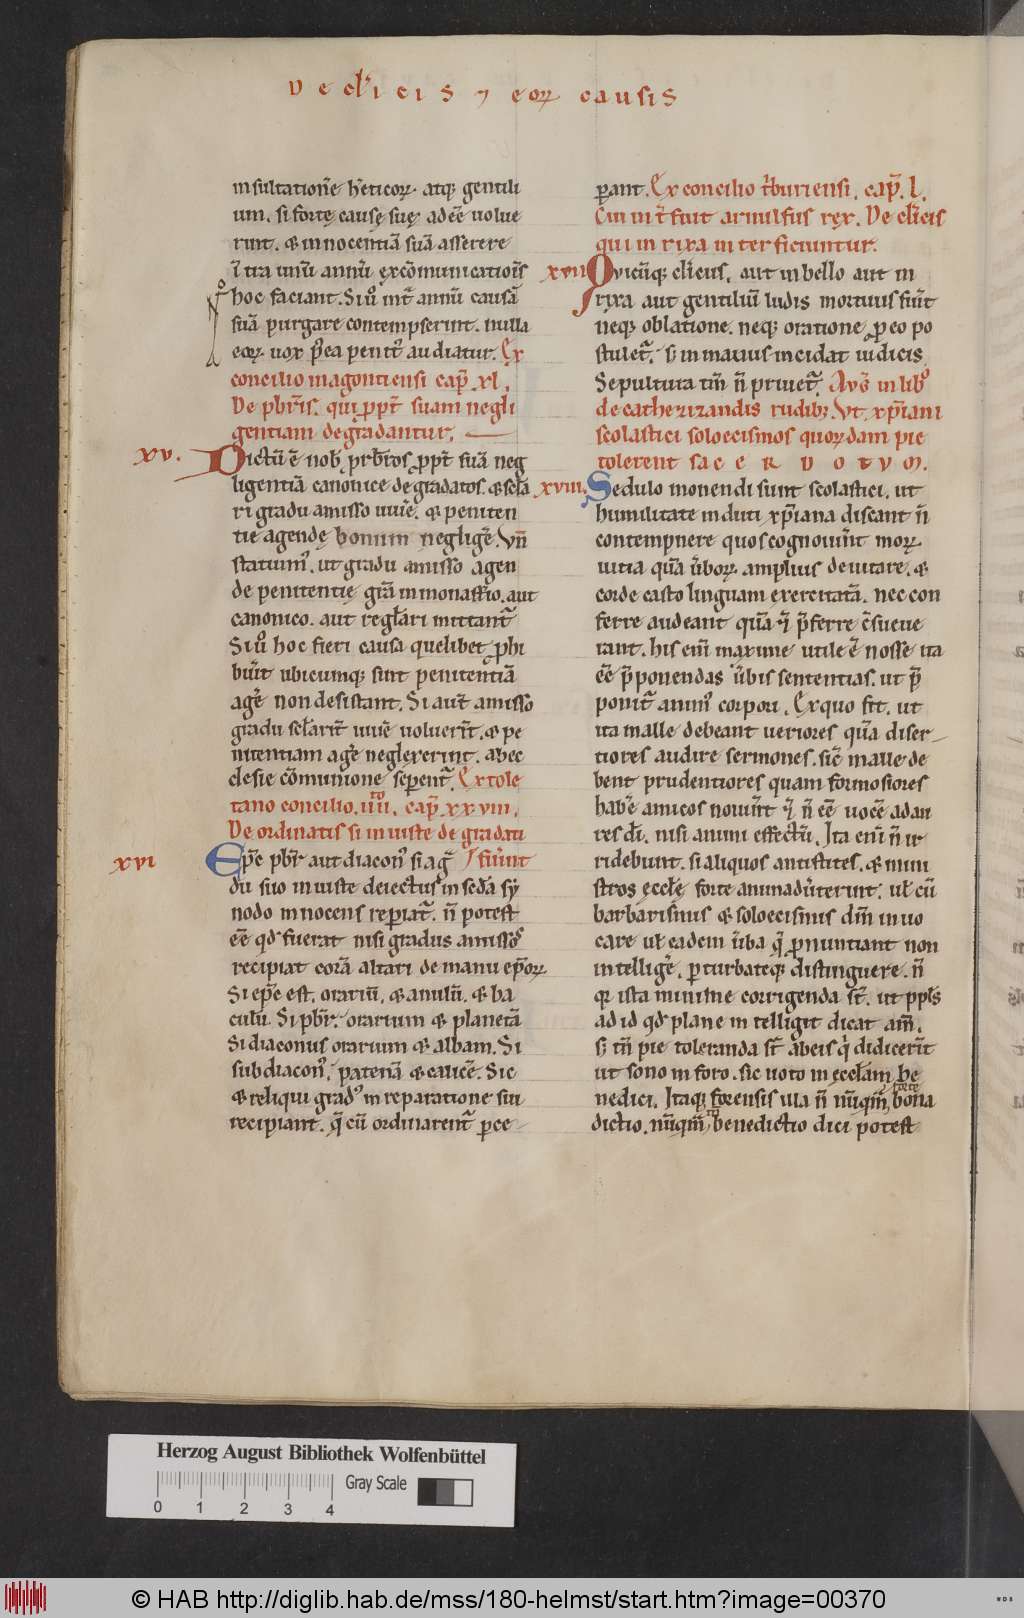 De cl'icis ⁊ eoꝝ causis
insultatione h'eticoꝝ. atq; gentili
um. si forte cause sue adee uolue
rint. & innocentiā suā asserere
īt̄ra unū annū excōmunicatiois
hoc faciant. Si ů int̄ annū causā
suā purgare contempserint. nulla
eoꝝ uox p̄ea penit' audiatur. Ex
concilio magontiensi cap̄. xl.
De pbr̄is. qui ꝓpt̄ suam negli
gentiam degradantur.
xv. Dictū ē nob̄ prb̄ros ꝓpt̄ suā neg
ligentiā canonice degradatos. & sclā
ri gradu amisso uiuē. & peniten
tie agende bonum negligē. Vn̄
statuim'. ut gradu amisso agen
de penitentie grā in monasſio. aut
canonico. aut regl'ari mittant̄
Si ů hoc fieri causa quelibet ꝓhi
bůit ubicumq; sint penitentiā
agē non desistant. Si aut̄ amisso
gradu scl'arit̄ uiuē uoluerīt. & pe
nitentiam agē neglexerint. ab ec
clesie cōmunione sepent̄. Ex tole
tano concilio. iiii.to cap̄. xxviii.
De ordinatis si iniuste degradati
xvi Ep̄c pbr̄ aut diacon' si a g̃ fůint
du suo iniuste deiectus in scda sy
nodo innocens repiat̄. n̄ potest
eē qd' fuerat nisi gradus amissos
recipiat corā altari de manu ep̄oꝝ.
Si ep̄c est. orariū. & anulū. & ba
culū. Si pbr̄. orarium & planetā
Si diaconus orarium & albam. Si
subdiacon'. patenā & calicē. Sic
& reliqui grad' in reparatione sui
recipiant. q̄ cū ordinarent̄ pce
perant. Ex concilio t'buriensi. cap̄. l.
Cui int̄fuit arnulfus rex. De cl'icis
qui in rixa interficiuntur.
xvii Qvicūq; cl'icus. aut in bello aut in
rixa aut gentiliū ludis mortuus fūit
neq; oblatione. neq; oratione ꝓ eo po
stulet̄. s; in manus incidat iudicis
Sepultura tm̄ n̄ priuet̄. Avḡ in lib'
de catherizandis rudib; Vt xp̄iani
scolastici soloecismos quordam pie
tolerent sacerdotum.
xviii. Sedulo monendi sunt scolastici. ut
humilitate induti xp̄iana discant n̄
contempnere quos cognouīnt moꝝ
uitia quā ůboꝝ amplius deuitare. &
corde casto linguam exercitatā. nec con
ferre audeant quā ⁊ p̄ferre c̄sueue
rant. his eni maxime utile ē nosse ita
eē p̄ponendas ůbis sententias. ut p̄
ponit̄ anim' corpori. Ex quo fit. ut
ita malle debeant ueriores quā diser
tiores audire sermones. sic̄ malle de
bent prudentiores quam formosiores
habē amicos nouīnt ⁊ n̄ eē uocē ad au
res di. nisi animi effectū. Ita eni n̄ ir
ridebunt. si aliquos antistites. & mini
stros eccle forte animadůterint. ul' cū
barbarismis & soloecismis dm̄ inuo
care ul' eadem ůba q̄ ꝓnuntiant non
intelligē. perturbateq; distinguere. n̄
qr ista minime corrigenda st̄. ut ppl's
ad id qd' plane intelligit dicat am̄.
s; tn̄ pie toleranda st̄ ab eis q' didicerīt
ut sono in foro. sic uoto in ecclam be
nedici. Itaq; forensis illa n̄ nūqm̄ forte bona
dictio. nūqm̄ tn̄ benedictio dici potest
Herzog August Bibliothek Wolfenbüttel
Gray Scale
0 1 2 3 4
© HAB http://diglib.hab.de/mss/180-helmst/start.htm?image=00370